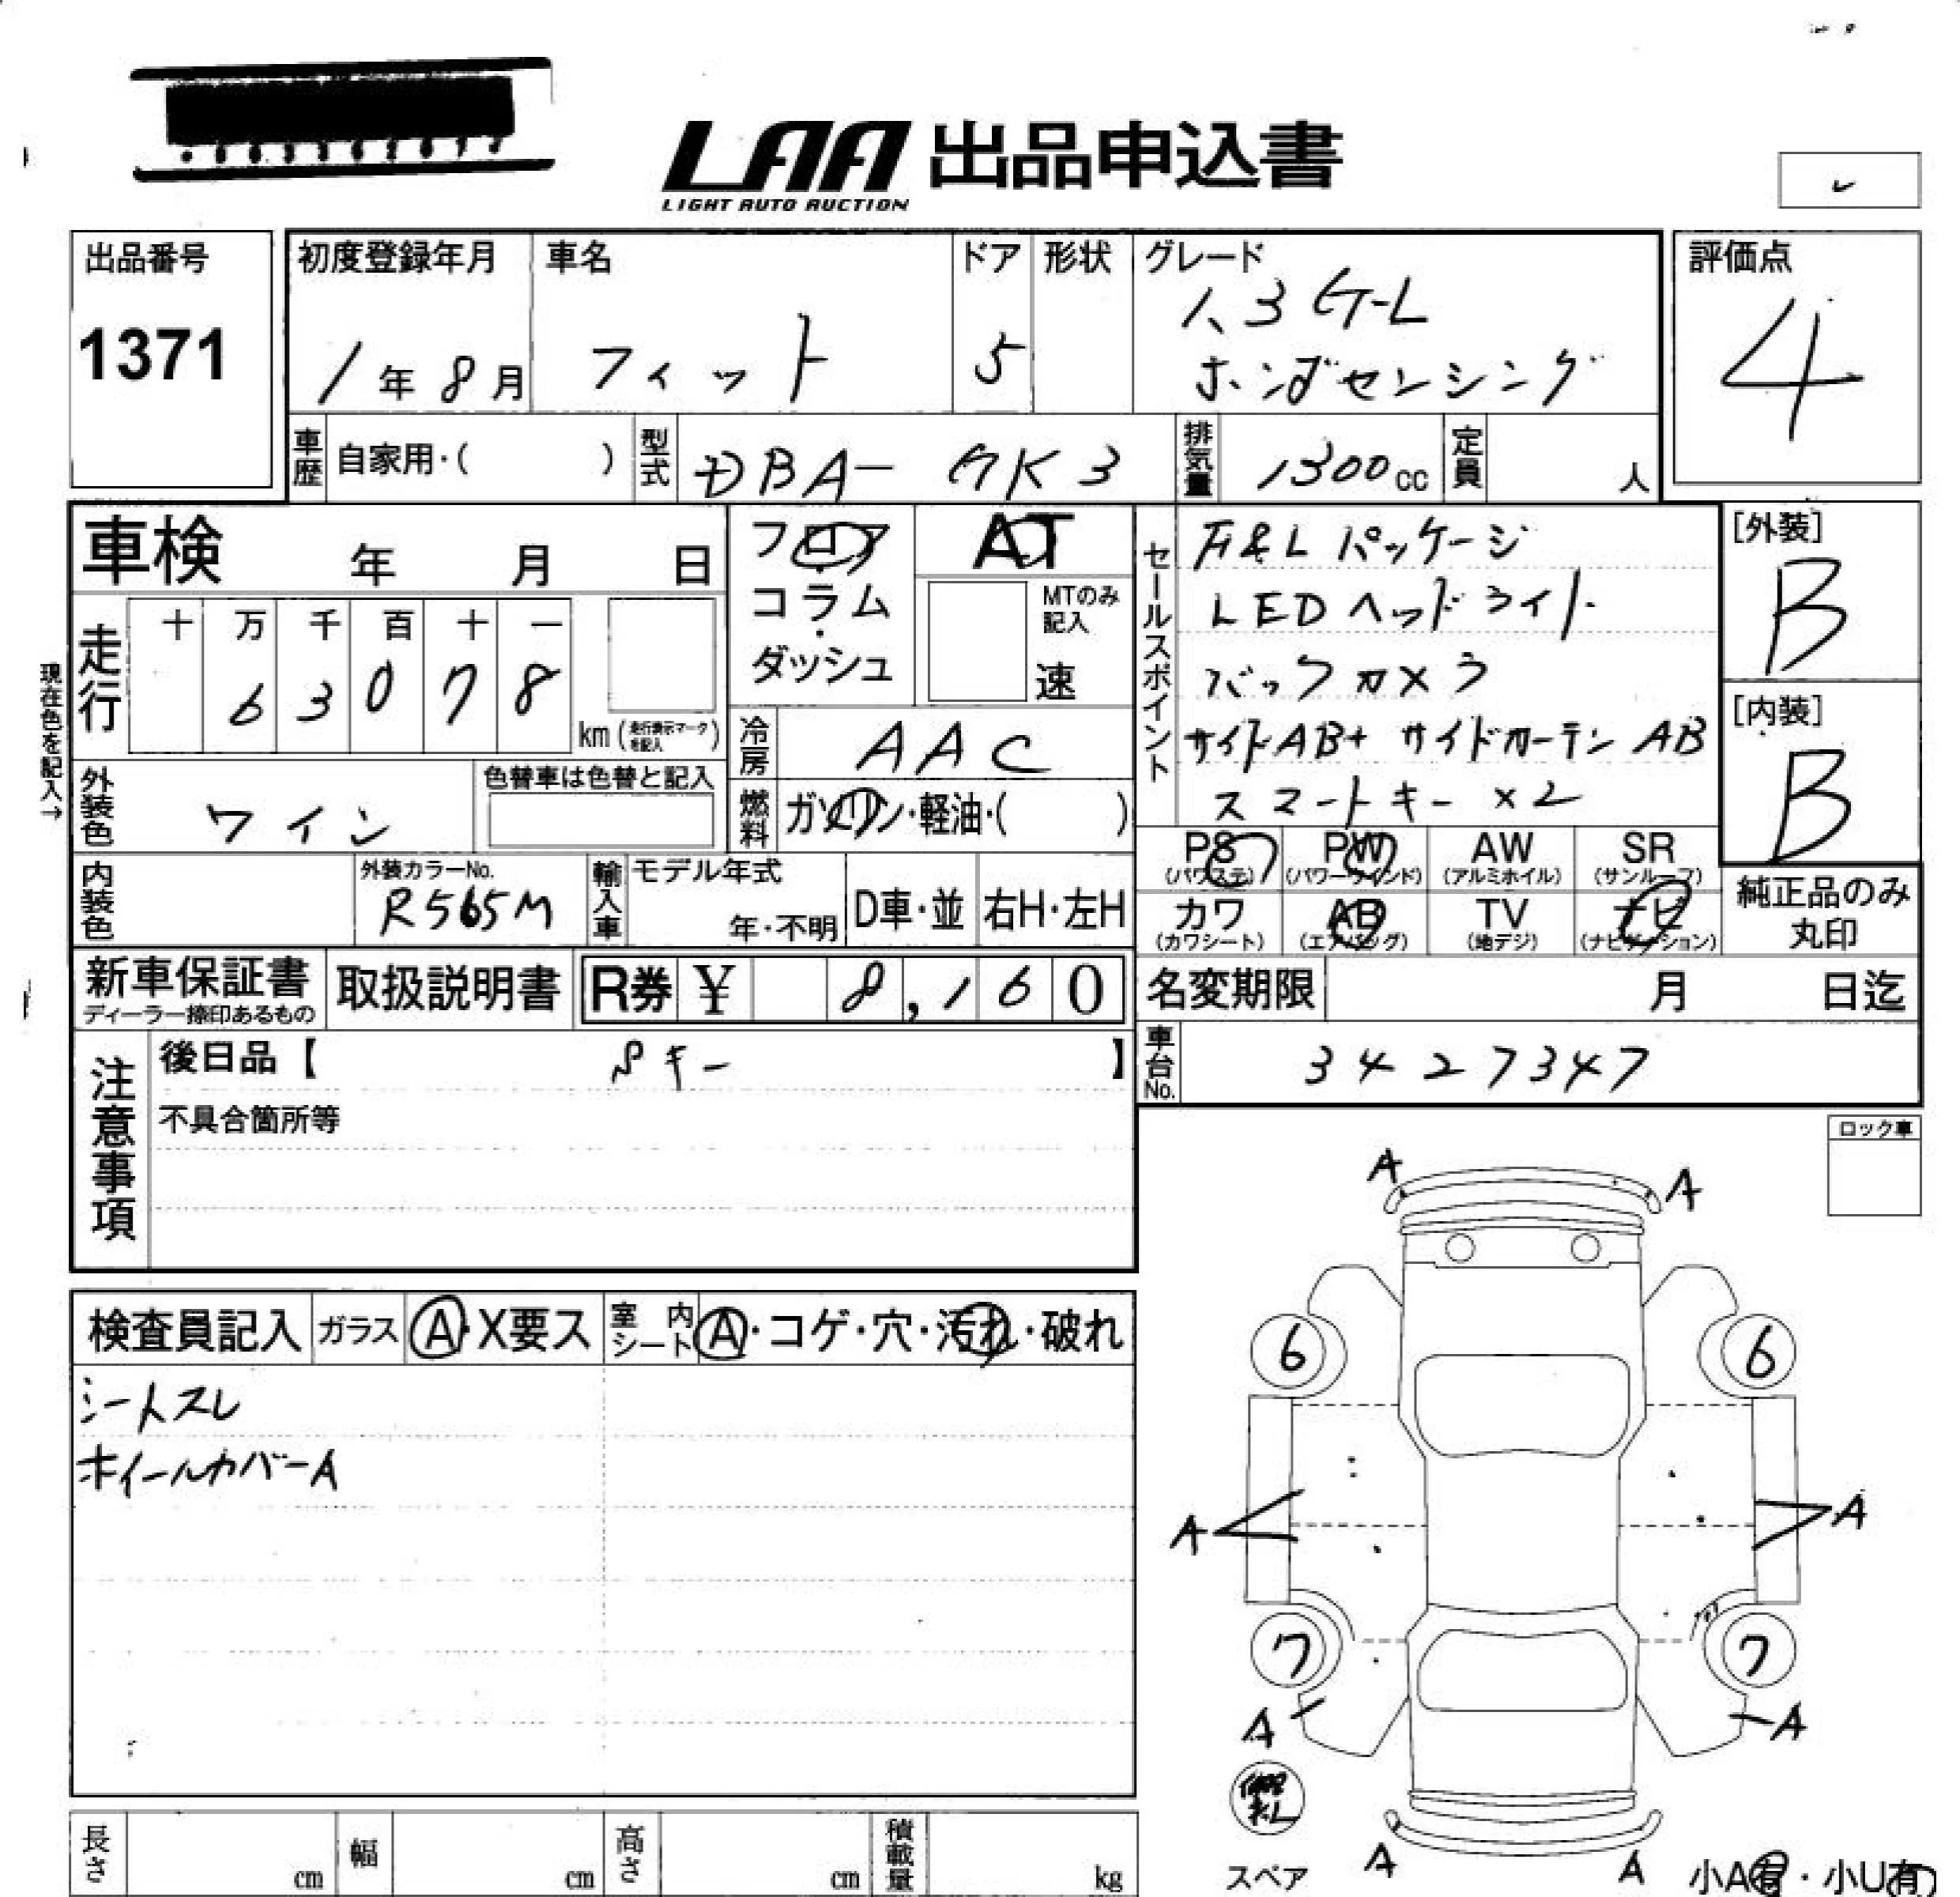 LAA 出品申込書
LIGHT AUTO AUCTION
出品番号
1371
初度登録年月
1年 8月
車名
フィット
ドア
5
形状
グレード
1.3 G-L
ホンダセンシング
評価点
4
車歴
自家用・( )
型式
DBA-GK3
排気量
1300cc
定員
人
車検 年 月 日
フロア・コラム・ダッシュ
AT
MTのみ記入
速
現在色を記入→
走行
十 万 千 百 十 一
6 3 0 7 8
km (走行表示マークを記入)
冷房
AAC
燃料
ガソリン・軽油・( )
外装色
ワイン
色替車は色替と記入
内装色
外装カラーNo.
R565M
輸入車
モデル年式
年・不明
D車・並
右H・左H
セールスポイント
LEDヘッドライト
バックカメラ
サイドAB+サイドカーテンAB
スマートキー×2
[外装]
B
[内装]
B
PS (パワステ)
PW (パワーウインド)
AW (アルミホイル)
SR (サンルーフ)
カワ (カワシート)
AB (エアバッグ)
TV (地デジ)
ナビ (ナビゲーション)
純正品のみ丸印
新車保証書
ディーラー捺印あるもの
取扱説明書
R券 ¥ 8,160
名変期限 月 日迄
車台No.
3427347
注意事項
後日品【 Sキー 】
不具合箇所等
ロック車
検査員記入
ガラス A・X要ス
室内シート A・コゲ・穴・汚れ・破れ
シートスレ
ホイールカバーA
A A
6 6
A A
7 7
A A
スペア
A A
小A有・小U有
長さ cm
幅 cm
高さ cm
積載量 kg